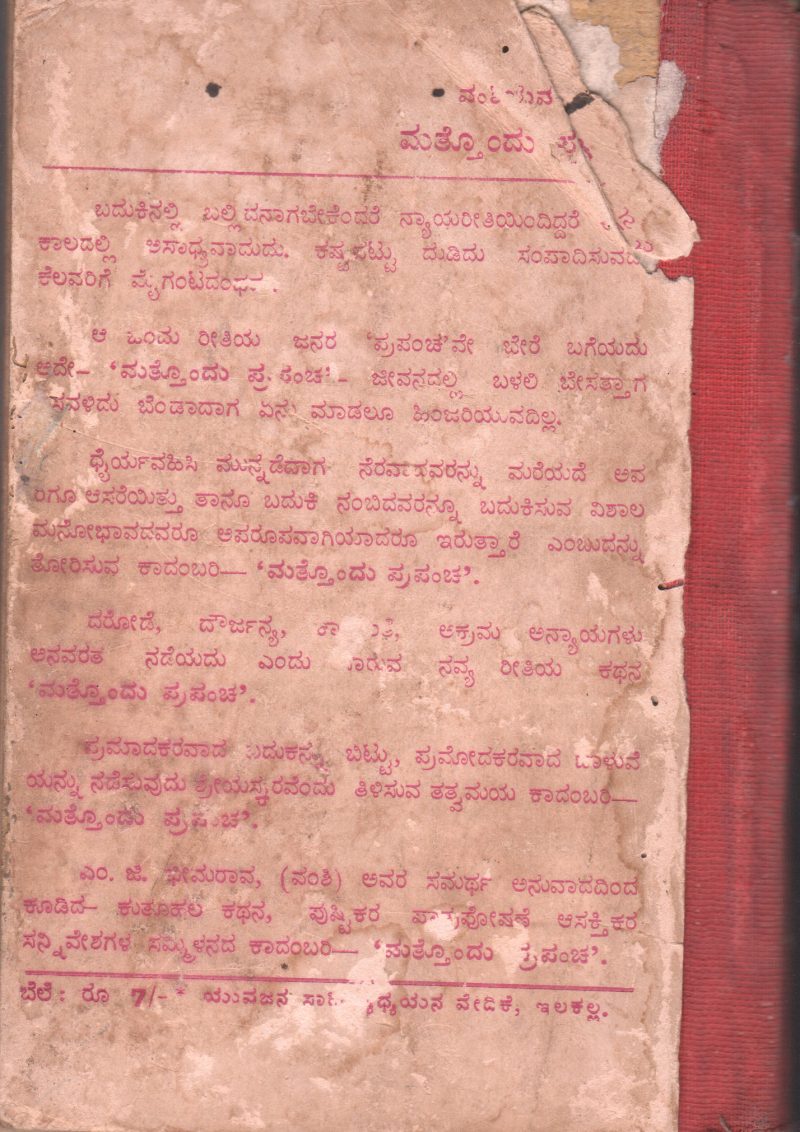 ಮತ್ತೊಂದು
ಬದುಕಿನಲ್ಲಿ ಬಲ್ಲಿದನಾಗಬೇಕೆಂದರೆ ನ್ಯಾಯರೀತಿಯಿಂದಿದ್ದರೆ
ಕಾಲದಲ್ಲಿ ಅಸಾಧ್ಯವಾದುದು. ಕಷ್ಟಪಟ್ಟು ದುಡಿದು ಸಂಪಾದಿಸುವದು
ಕೆಲವರಿಗೆ
ಆ ಒಂದು ರೀತಿಯ ಜನರ ‘ಪ್ರಪಂಚ’ವೇ ಬೇರೆ ಬಗೆಯದು
ಅದೇ– ‘ಮತ್ತೊಂದು ಪ್ರಪಂಚ’– ಜೀವನದಲ್ಲಿ ಬಳಲಿ ಬೇಸತ್ತಾಗ
ಸವಳಿದು ಬೆಂಡಾದಾಗ ಏನು ಮಾಡಲೂ ಹಿಂಜರಿಯುವದಿಲ್ಲ.
ಧೈರ್ಯವಹಿಸಿ ಮುನ್ನಡೆದಾಗ ನೆರವಾದವರನ್ನು ಮರೆಯದೆ ಅವ
ರಿಗೂ ಆಸರೆಯಿತ್ತು ತಾನೂ ಬದುಕಿ ನಂಬಿದವರನ್ನೂ ಬದುಕಿಸುವ ವಿಶಾಲ
ಮನೋಭಾವದವರೂ ಅಪರೂಪವಾಗಿಯಾದರೂ ಇರುತ್ತಾರೆ ಎಂಬುದನ್ನು
ತೋರಿಸುವ ಕಾದಂಬರಿ— ‘ಮತ್ತೊಂದು ಪ್ರಪಂಚ’.
ದರೋಡೆ, ದೌರ್ಜನ್ಯ, ಅಕ್ರಮ ಅನ್ಯಾಯಗಳು
ಅನವರತ ನಡೆಯದು ಎಂದು ಸಾರುವ ನವ್ಯ ರೀತಿಯ ಕಥನ
‘ಮತ್ತೊಂದು ಪ್ರಪಂಚ’.
ಪ್ರಮಾದಕರವಾದ ಬದುಕನ್ನು ಬಿಟ್ಟು, ಪ್ರಮೋದಕರವಾದ ಬಾಳುವೆ
ಯನ್ನು ನಡೆಸುವುದು ಶ್ರೇಯಸ್ಕರವೆಂದು ತಿಳಿಸುವ ತತ್ವಮಯ ಕಾದಂಬರಿ—
‘ಮತ್ತೊಂದು ಪ್ರಪಂಚ’.
ಎಂ. ಜಿ. ಭೀಮರಾವ, (ವಂಶಿ) ಅವರ ಸಮರ್ಥ ಅನುವಾದದಿಂದ
ಕೂಡಿದ– ಕುತೂಹಲ ಕಥನ, ಪುಷ್ಟಿಕರ ಪಾತ್ರಪೋಷಣೆ ಆಸಕ್ತಿಕರ
ಸನ್ನಿವೇಶಗಳ ಸಮ್ಮಿಳನದ ಕಾದಂಬರಿ— ‘ಮತ್ತೊಂದು ಪ್ರಪಂಚ’.
ಬೆಲೆ: ರೂ 7/- * ಯುವಜನ ವೇದಿಕೆ, ಇಲಕಲ್ಲ.